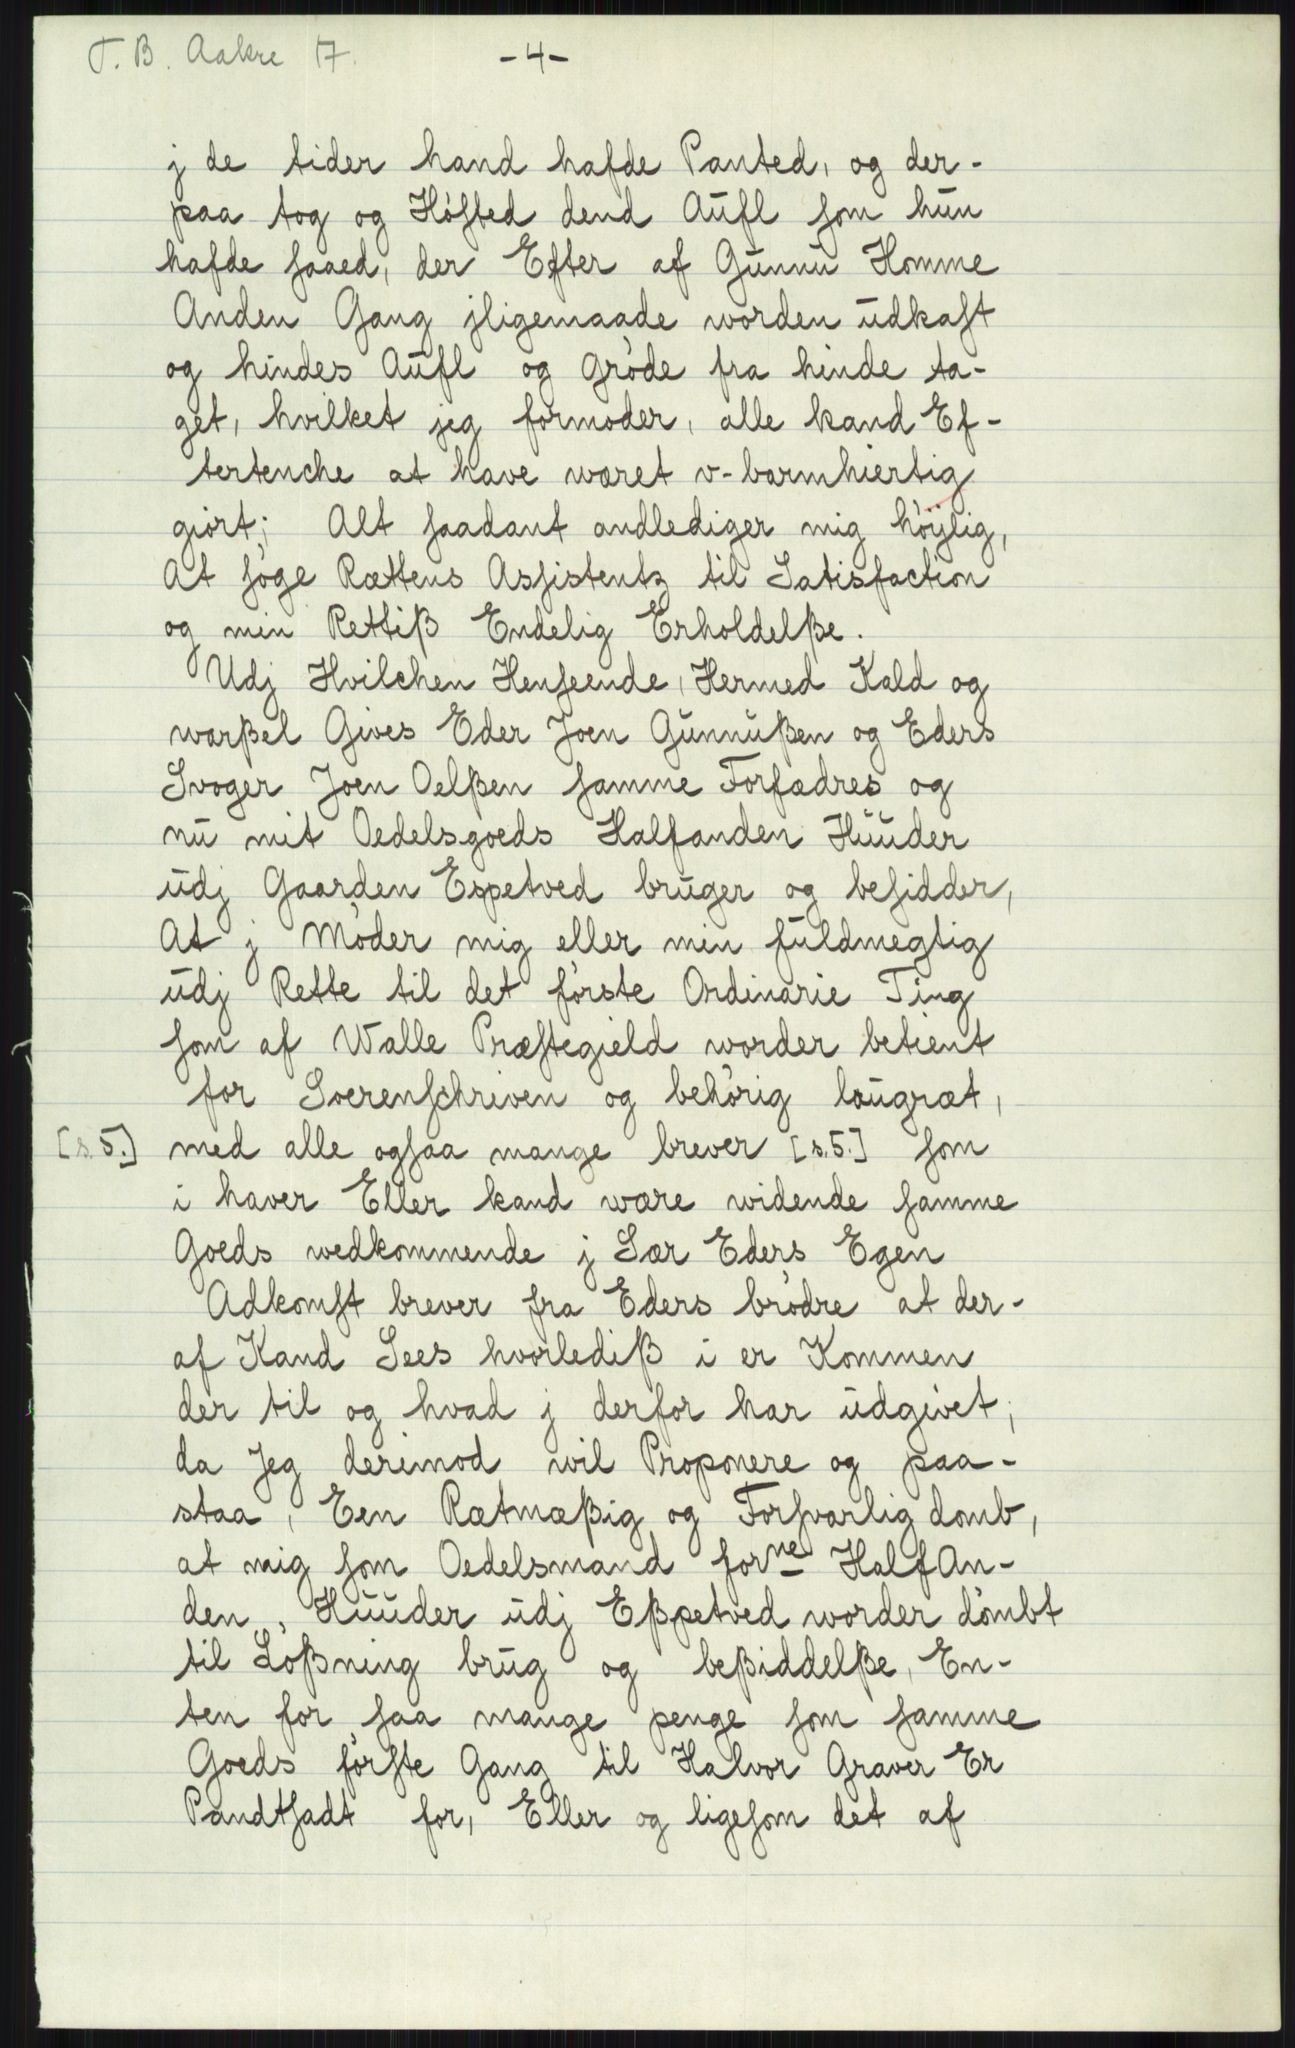 T. B. Aakre 17.
-4-
j de tider hand hafde Panted, og der-
paa tog og Høsted dend Aufl som hun
hafde saaed, der Efter af Gunnu Homme
Anden Gang jligemaade worden udkast
og hindes Aufl og grøde fra hinde ta-
get, hvilket jeg formoder, alle kand Ef-
tertenche at have wæret v-barmhiertig
giort; Alt saadant andlediger mig höÿlig,
At søge Rættens Assistentz til Satisfaction
og min Rettiß Endelig Erholdelße.
Udj Hvilchen Henseende, Hermed Kald og
warßel Gives Eder Joen Gunnußen og Eders
Svoger Joen Oelßen samme Forfædres og
nu mit Oedelsgoeds Halfanden Huuder
udj Gaarden Espetved bruger og besidder,
At j Møder mig eller min fuldmegtig
udj Rette til det første Ordinarie Ting
som af Walle Præstegield worder betient
for Soerenschriven og behørig laugræt,
[s.5.] med alle ogsaa mange brever [s.5.] som
i haver Eller kand wære widende samme
Goeds wedkommende j Sær Eders Egen
Adkomst brever fra Eders brødre at der-
af Kand Sees hvorlediß i er Kommen
der til og hvad j derfor har udgivet;
da Jeg derimod wil Proponere og paa-
staa, Een Rætmæßig og Forsvarlig domb,
at mig som Oedelsmand forne HalfAn-
den, Huuder udj Eßpetved worder dømbt
til Løßning brug og beßiddelße, En-
ten for saa mange penge som samme
Goeds første Gang til Halvor Graver Er
Pandtsadt for, Eller og ligesom det af